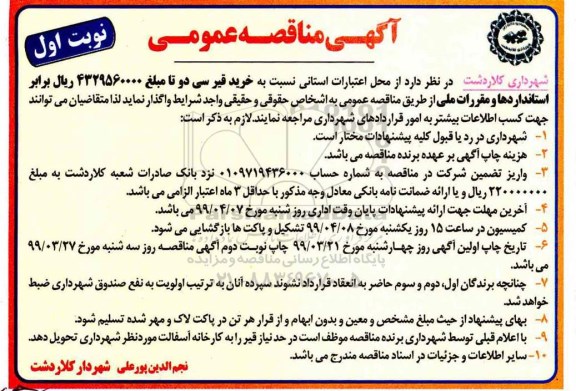 آگهی مناقصه عمومی
نوبت اول
شهرداری کلاردشت در نظر دارد از محل اعتبارات استانی نسبت به خرید قیر سی دو تا مبلغ ۴۳۲۹۵۶۰۰۰۰ ریال برابر
استانداردها و مقررات ملی از طریق مناقصه عمومی به اشخاص حقوقی و حقیقی واجد شرایط واگذار نماید لذا متقاضیان می توانند
جهت کسب اطلاعات بیشتر به امور قراردادهای شهرداری مراجعه نمایند. لازم به ذکر است:
۱- شهرداری در رد یا قبول کلیه پیشنهادات مختار است.
۲- هزینه چاپ آگهی بر عهده برنده مناقصه می باشد.
۳- واریز تضمین شرکت در مناقصه به شماره حساب ۰۱۰۹۷۱۹۴۳۶۰۰۰ نزد بانک صادرات شعبه کلاردشت به مبلغ
۲۲۰۰۰۰۰۰۰ ریال و یا ارائه ضمانت نامه بانکی معادل وجه مذکور با حداقل ۳ ماه اعتبار الزامی می باشد.
۴- آخرین مهلت جهت ارائه پیشنهادات پایان وقت اداری روز شنبه مورخ ۹۹/۰۴/۰۷ می باشد.
۵- کمیسیون در ساعت ۱۵ روز یکشنبه مورخ ۹۹/۰۴/۰۸ تشکیل و پاکت ها بازگشایی می شود.
۶- تاریخ چاپ اولین آگهی روز چهارشنبه مورخ ۹۹/۰۳/۲۱ چاپ نوبت دوم آگهی مناقصه روز سه شنبه مورخ ۹۹/۰۳/۲۷
می باشد.
۷- چنانچه برندگان اول، دوم و سوم حاضر به انعقاد قرارداد نشوند سپرده آنان به ترتیب اولویت به نفع صندوق شهرداری ضبط
خواهد شد.
۸- بهای پیشنهاد از حیث مبلغ مشخص و معین و بدون ابهام و از قرار هر تن در پاکت لاک و مهر شده تسلیم شود.
۹- با اعلام قبلی توسط شهرداری برنده مناقصه موظف است در حد نیاز قیر را به کارخانه آسفالت موردنظر شهرداری تحویل دهد.
۱۰- سایر اطلاعات و جزئیات در اسناد مناقصه مندرج می باشد.
نجم الدین پورعلی شهردار کلاردشت
پایگاه اطلاع رسانی مناقصه و مزایده